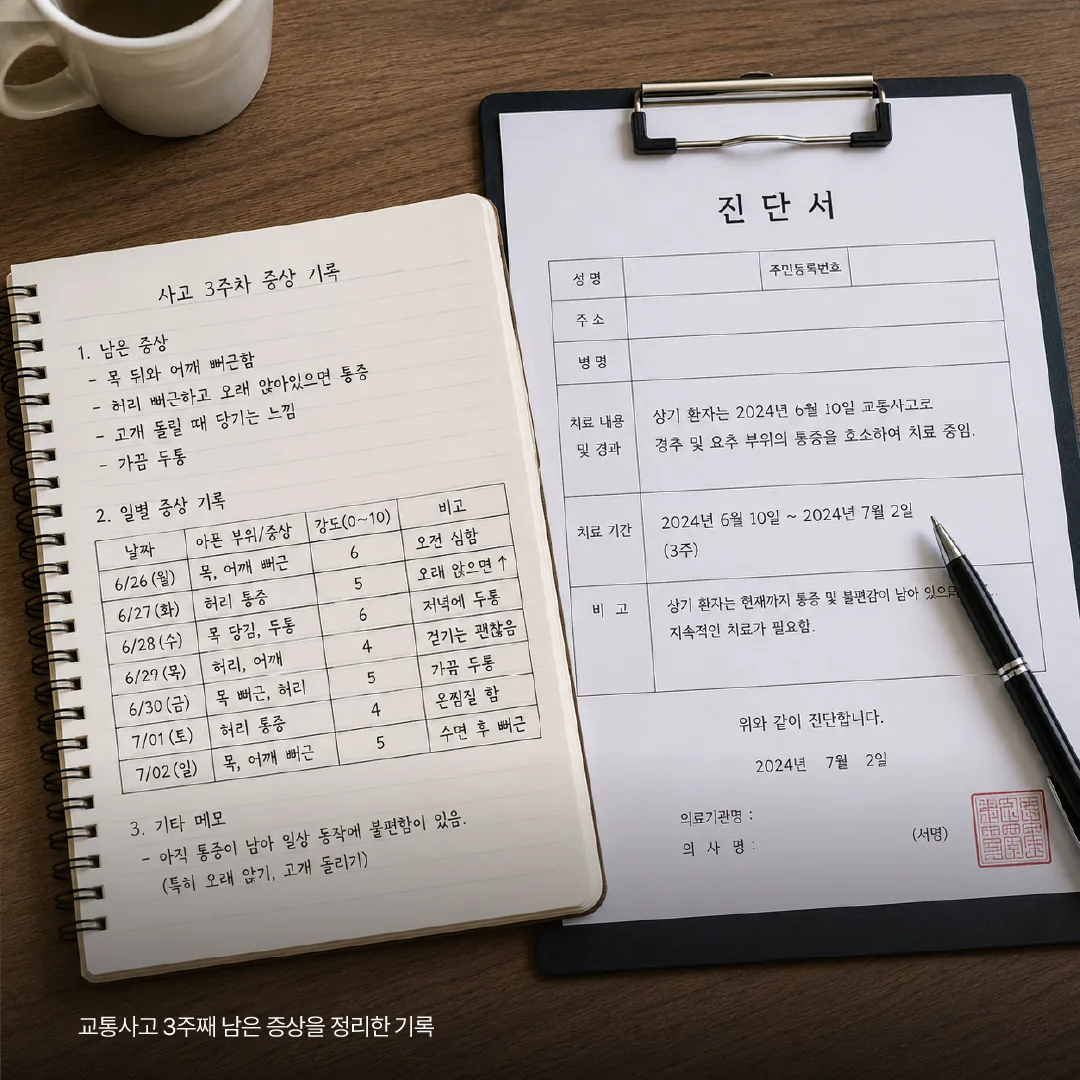 사고 3주차 증상 기록
1. 남은 증상
- 목 뒤와 어깨 뻐근함
- 허리 뻐근하고 오래 앉아있으면 통증
- 고개 돌릴 때 당기는 느낌
- 가끔 두통
2. 일별 증상 기록
날짜 아픈 부위/증상 강도(0~10) 비고
6/26 (월) 목, 어깨 뻐근 6 오전 심함
6/27 (화) 허리 통증 5 오래 앉으면 ↑
6/28 (수) 목 당김, 두통 6 저녁에 두통
6/29 (목) 허리, 어깨 4 걷기는 괜찮음
6/30 (금) 목 뻐근, 허리 5 가끔 두통
7/01 (토) 허리 통증 4 온찜질 함
7/02 (일) 목, 어깨 뻐근 5 수면 후 뻐근
3. 기타 메모
- 아직 통증이 남아 일상 동작에 불편함이 있음.
(특히 오래 앉기, 고개 돌리기)
진 단 서
성 명 주민등록번호
주 소
병 명
치료 내용
및 경과
상기 환자는 2024년 6월 10일 교통사고로
경추 및 요추 부위의 통증을 호소하여 치료 중임.
치료 기간
2024년 6월 10일 ~ 2024년 7월 2일
(3주)
비 고
상기 환자는 현재까지 통증 및 불편감이 남아
지속적인 치료가 필요함.
위와 같이 진단합니다.
2024년 7월 2일
의료기관명 :
의 사 명 : (서명)
교통사고 3주째 남은 증상을 정리한 기록